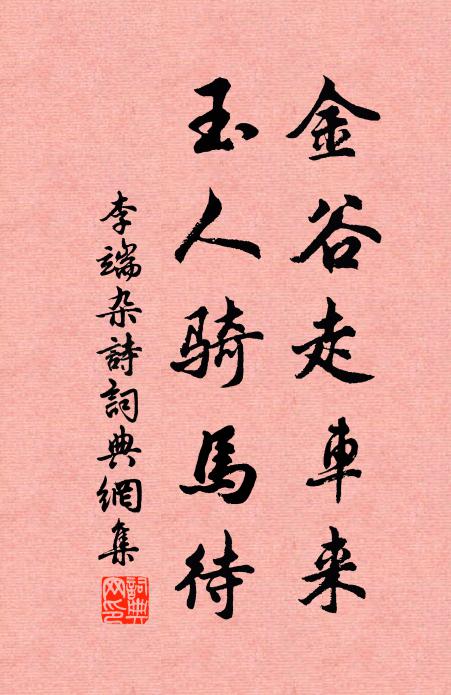 金谷走車来
玉人騎馬待
李端杂詩詞典網集